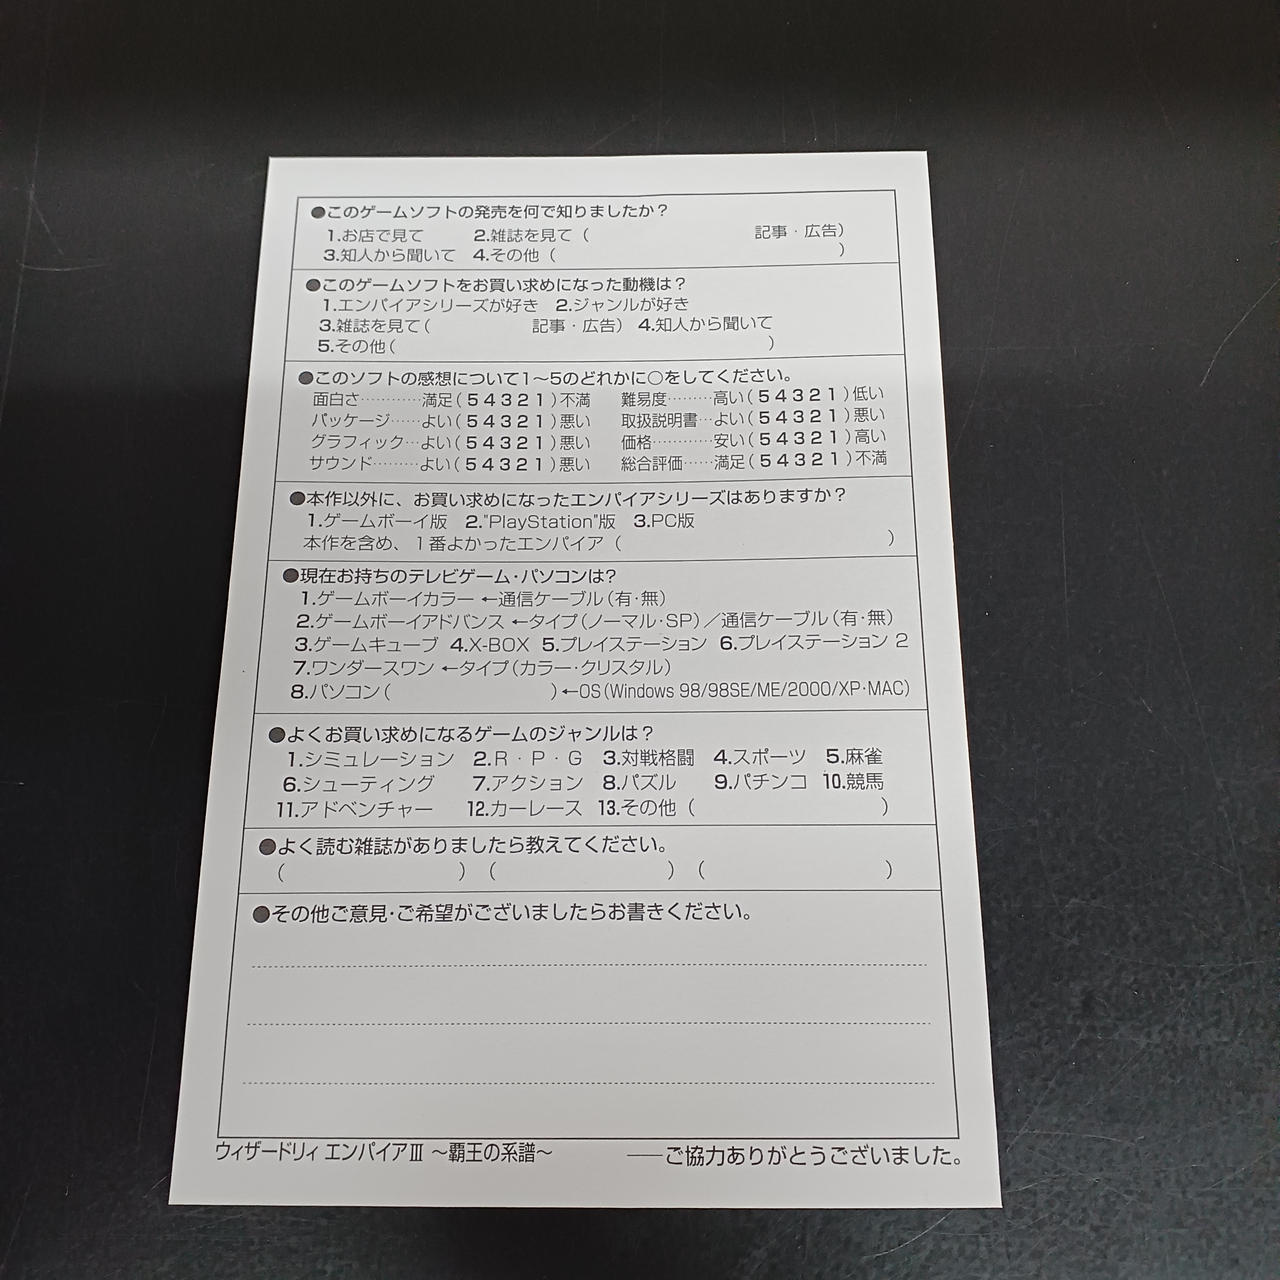 ●このゲームソフトの発売を何で知りましたか？
1.お店で見て 2.雑誌を見て（ 記事・広告）
3.知人から聞いて 4.その他（ ）
●このゲームソフトをお買い求めになった動機は？
1.エンパイアシリーズが好き 2.ジャンルが好き
3.雑誌を見て（ 記事・広告） 4.知人から聞いて
5.その他（ ）
●このソフトの感想について1～5のどれかに○をしてください。
面白さ…………満足（5 4 3 2 1）不満 難易度………高い（5 4 3 2 1）低い
パッケージ……よい（5 4 3 2 1）悪い 取扱説明書…よい（5 4 3 2 1）悪い
グラフィック…よい（5 4 3 2 1）悪い 価格…………安い（5 4 3 2 1）高い
サウンド………よい（5 4 3 2 1）悪い 総合評価……満足（5 4 3 2 1）不満
●本作以外に、お買い求めになったエンパイアシリーズはありますか？
1.ゲームボーイ版 2."PlayStation"版 3.PC版
本作を含め、1番よかったエンパイア（ ）
●現在お持ちのテレビゲーム・パソコンは？
1.ゲームボーイカラー ←通信ケーブル（有・無）
2.ゲームボーイアドバンス ←タイプ（ノーマル・SP）／通信ケーブル（有・無）
3.ゲームキューブ 4.X-BOX 5.プレイステーション 6.プレイステーション 2
7.ワンダースワン ←タイプ（カラー・クリスタル）
8.パソコン（ ）←OS（Windows 98/98SE/ME/2000/XP・MAC）
●よくお買い求めになるゲームのジャンルは？
1.シミュレーション 2.R・P・G 3.対戦格闘 4.スポーツ 5.麻雀
6.シューティング 7.アクション 8.パズル 9.パチンコ 10.競馬
11.アドベンチャー 12.カーレース 13.その他（ ）
●よく読む雑誌がありましたら教えてください。
（ ）（ ）（ ）
●その他ご意見・ご希望がございましたらお書きください。
ウィザードリィ エンパイアⅢ ～覇王の系譜～ ――ご協力ありがとうございました。